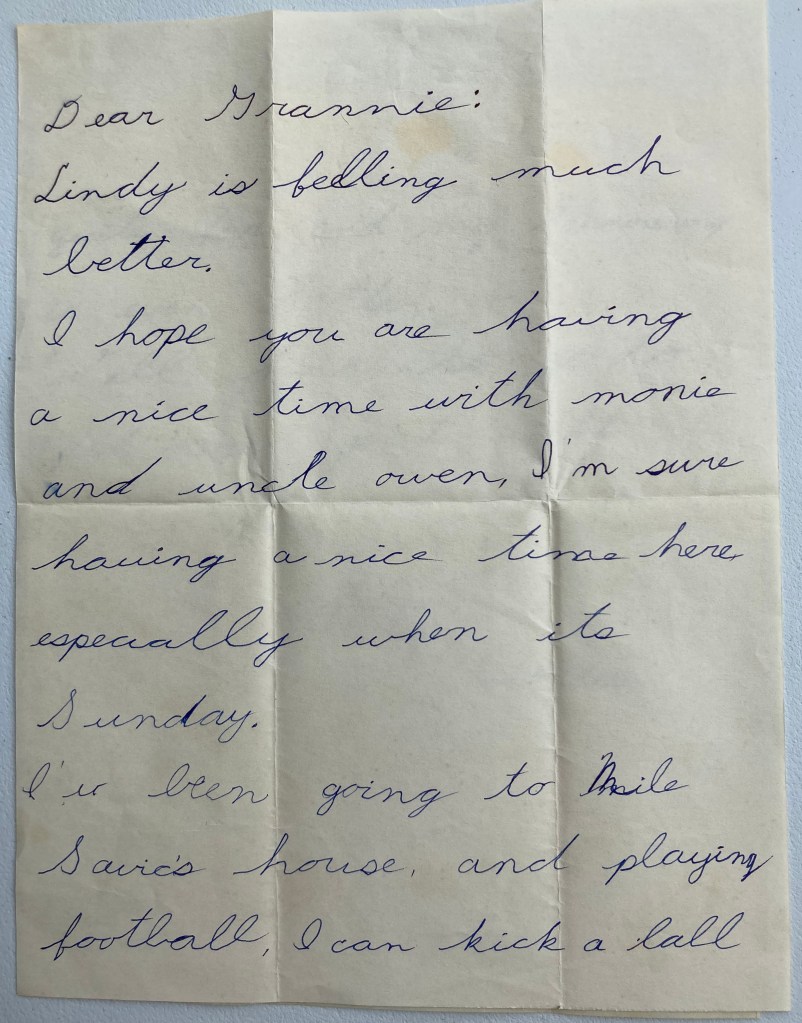 Dear Grannie:
Lindy is felling much
better.
I hope you are having
a nice time with monie
and uncle owen, I'm sure
having a nice time here,
especially when its
Sunday.
I'v been going to Mile
Savie's house, and playing
football, I can kick a ball